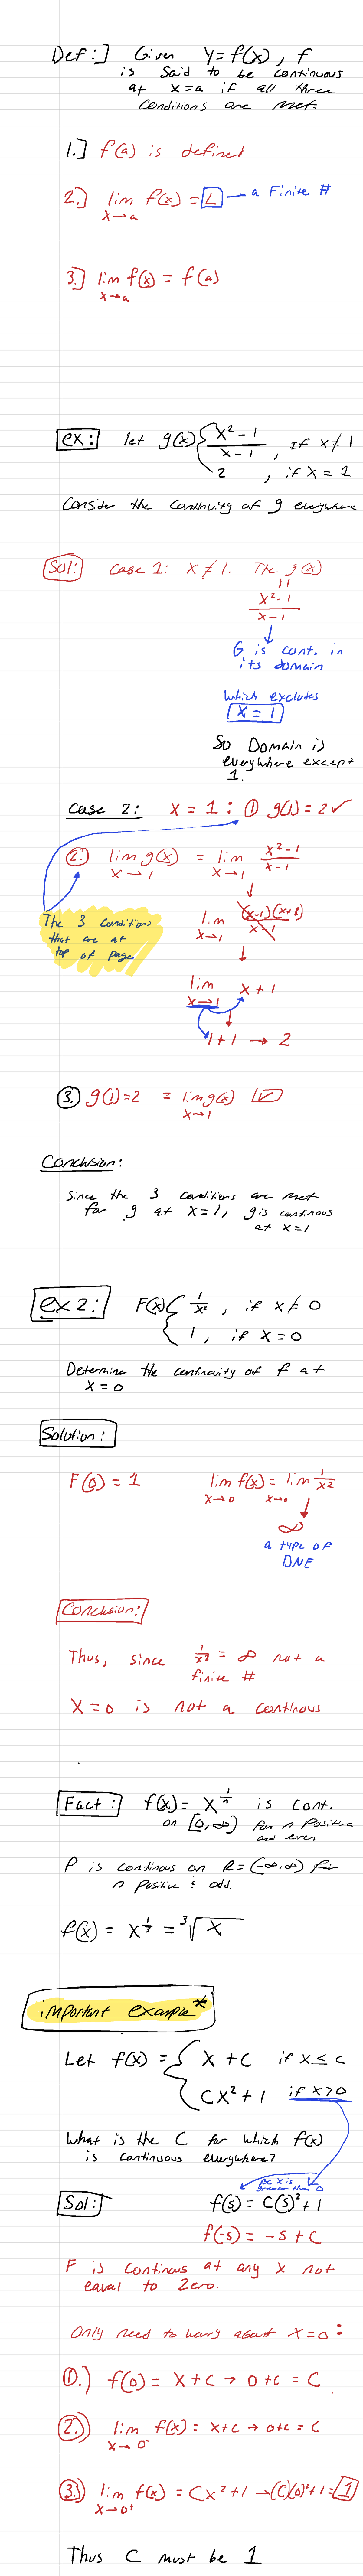 Def:] Given y=f(x), f
is said to be continuous
at x=a if all three
conditions are met.
1.] f(a) is defined
2.] lim f(x) = L → a Finite #
x→a
3.] lim f(x) = f(a)
x→a
ex: let g(x) { x²-1 / x-1 , if x≠1
2 , if x = 1
Consider the continuity of g everywhere
Sol: case 1: x ≠ 1. The g(x)
||
x²-1 / x-1
G is cont. in
its domain
which excludes
x = 1
So Domain is
everywhere except
1.
Case 2: x = 1 : ① g(1) = 2 ✓
②: lim g(x) = lim x²-1 / x-1
x→1 x→1
The 3 conditions
that are at
top of page
lim (x-1)(x+1) / x-1
x→1
lim x+1
x→1
1+1 → 2
③. g(1)=2 = lim g(x) ✓
x→1
Conclusion:
Since the 3 conditions are met
for g at x=1, g is continous
at x=1
ex 2: F(x) { 1/x² , if x≠0
1 , if x = 0
Determine the continuity of f at
x = 0
Solution:
F(0) = 1 lim f(x) = lim 1/x²
x→0 x→0
∞
a type of
DNE
Conclusion:
Thus, since 1/x² = ∞ not a
finite #
X=0 is not a continous
Fact: f(x) = x^(1/n) is cont.
on [0,∞) for n positive
and even
F is continous on R = (-∞,∞) for
n positive & odd.
f(x) = x^(1/3) = ³√x
important example*
Let f(x) = { x + c if x ≤ c
cx²+1 if x>0
What is the C for which f(x)
is continuous everywhere?
bc x is
greater than 0
Sol: f(5) = C(5)²+1
f(-5) = -5+C
F is continous at any x not
eaual to Zero.
Only need to worry about x=0:
①.) f(0) = x+c → 0+c = C
②.) lim f(x) = x+c → 0+c = C
x→0⁻
③.) lim f(x) = Cx²+1 → (C)(0)²+1 = 1
x→0⁺
Thus C must be 1